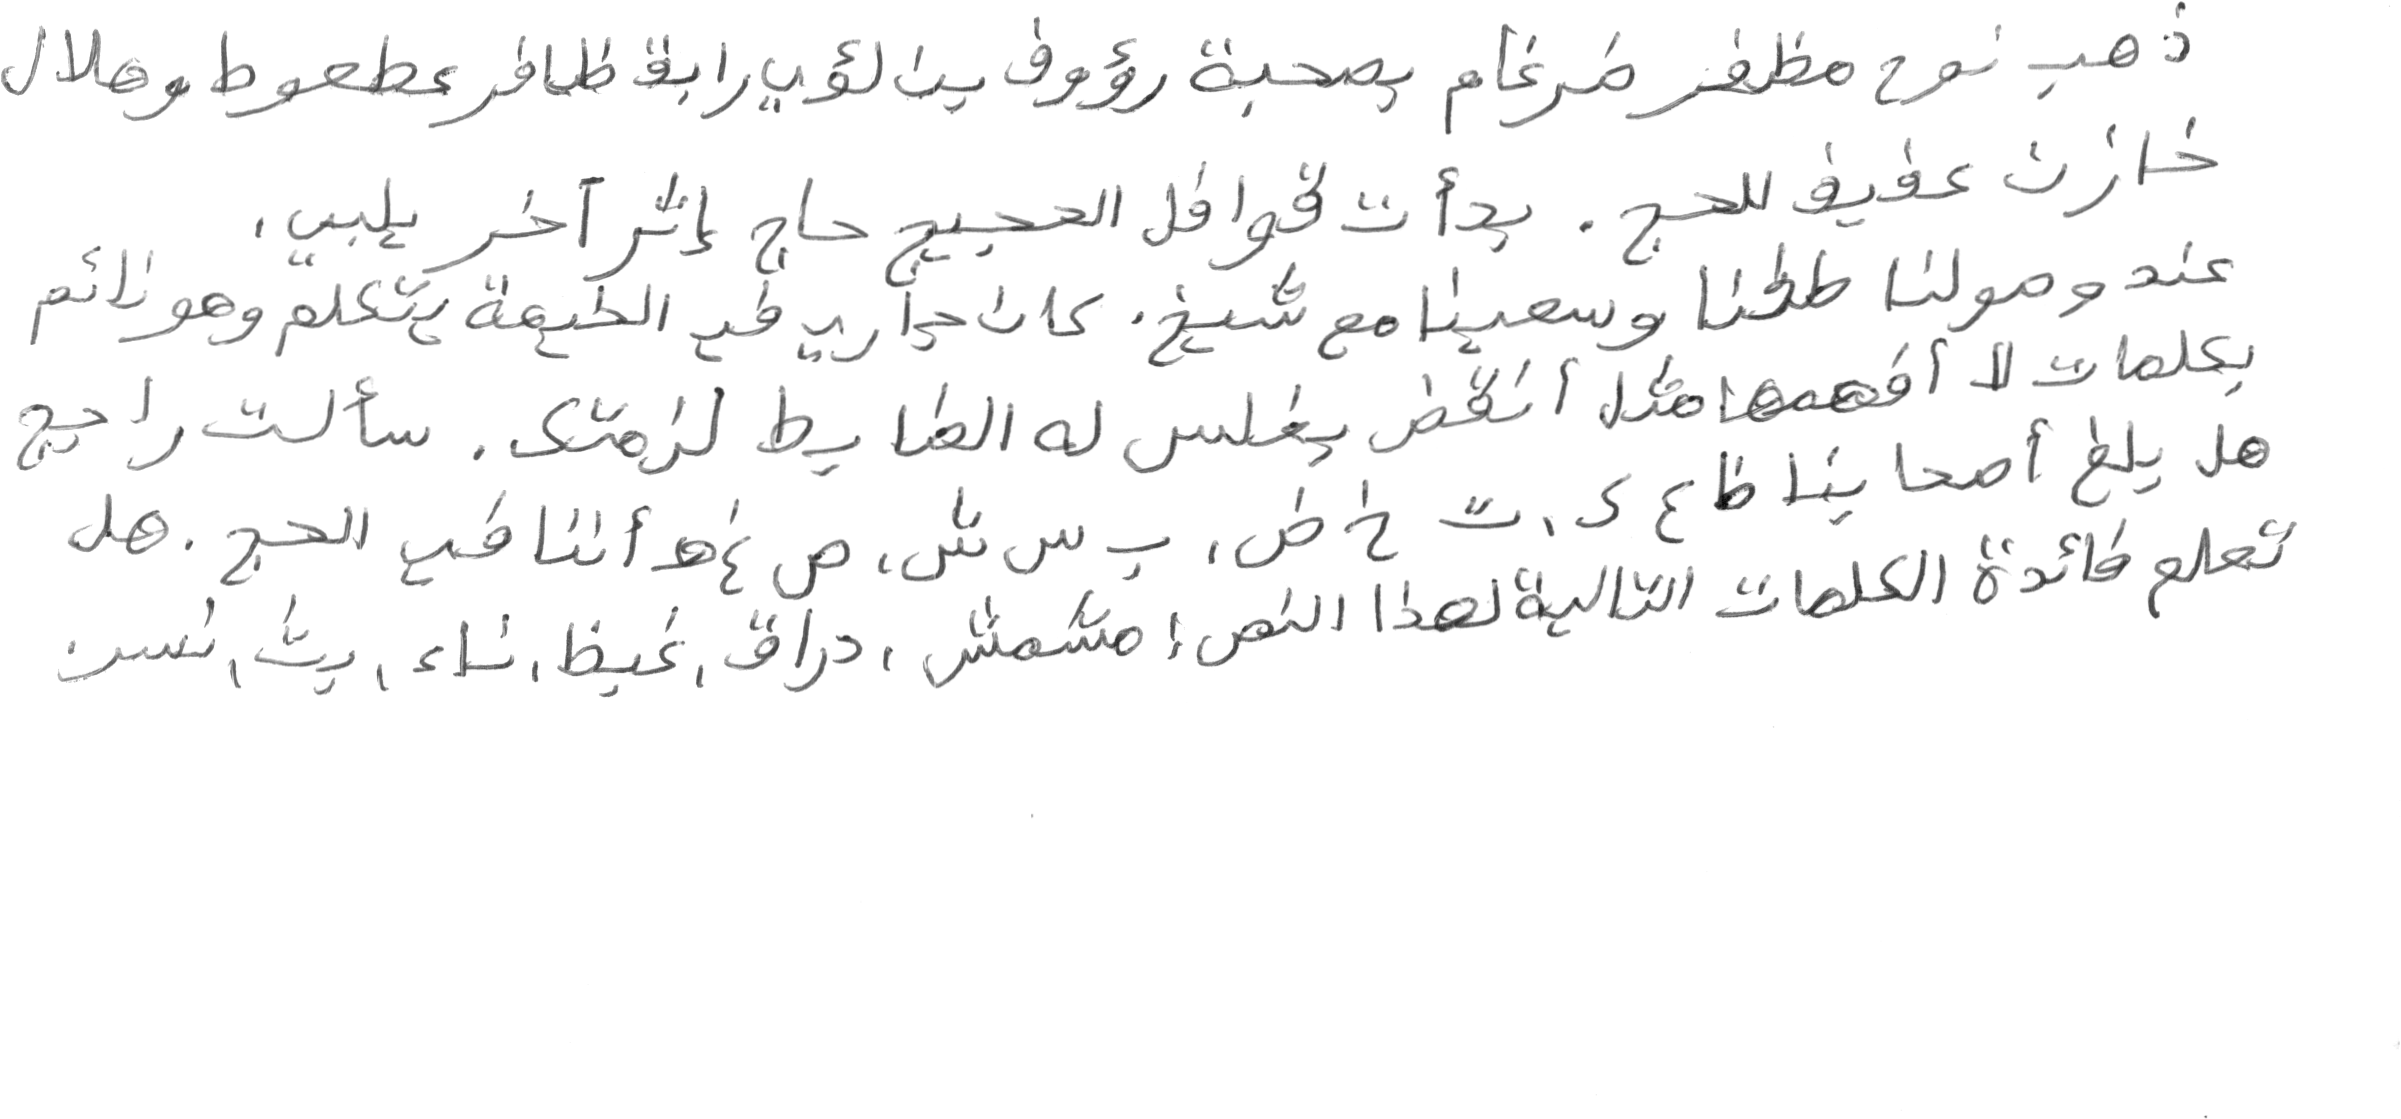 ذهب نوح مظفر ضرغام بصحبة رؤوف بن لؤي راية ظافر عطعوط وهلال
خازن عفيف للحج. بدأت قوافل الحجيج حاج إثر آخر يلبي،
عند وصولنا طفنا وسعينا مع شيخ. كان جاري في الخيمة يتكلم وهو نائم
بكلمات لا أفهمها مثل أنقض يغلس له الضابط لزمتك. سألت راجح
هل بلغ أصحابنا ظ ع ك، ث خ ض، ب س ش، ص غ هـ أننا في الحج. هل
تعلم فائدة الكلمات التالية لهذا النص: مشمش، دراق، غيظ، ناء، بث، نسن